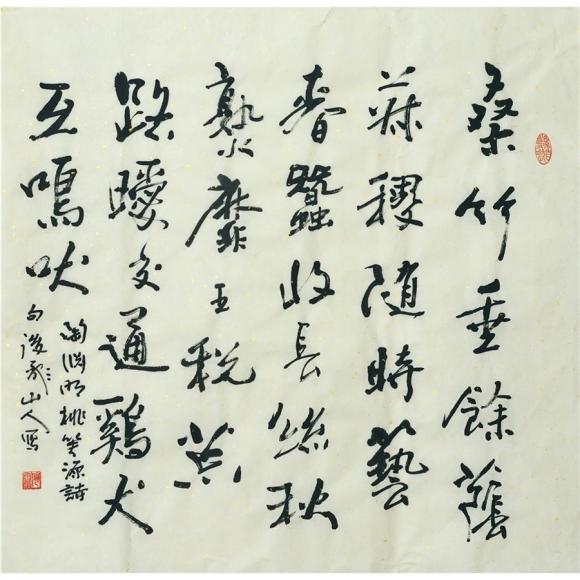 桑竹垂餘蔭
菽稷隨時藝
春蠶收長絲秋
熟靡王税荒
路曖交通鷄犬
互鳴吠
陶淵明桃花源詩
句 山人寫